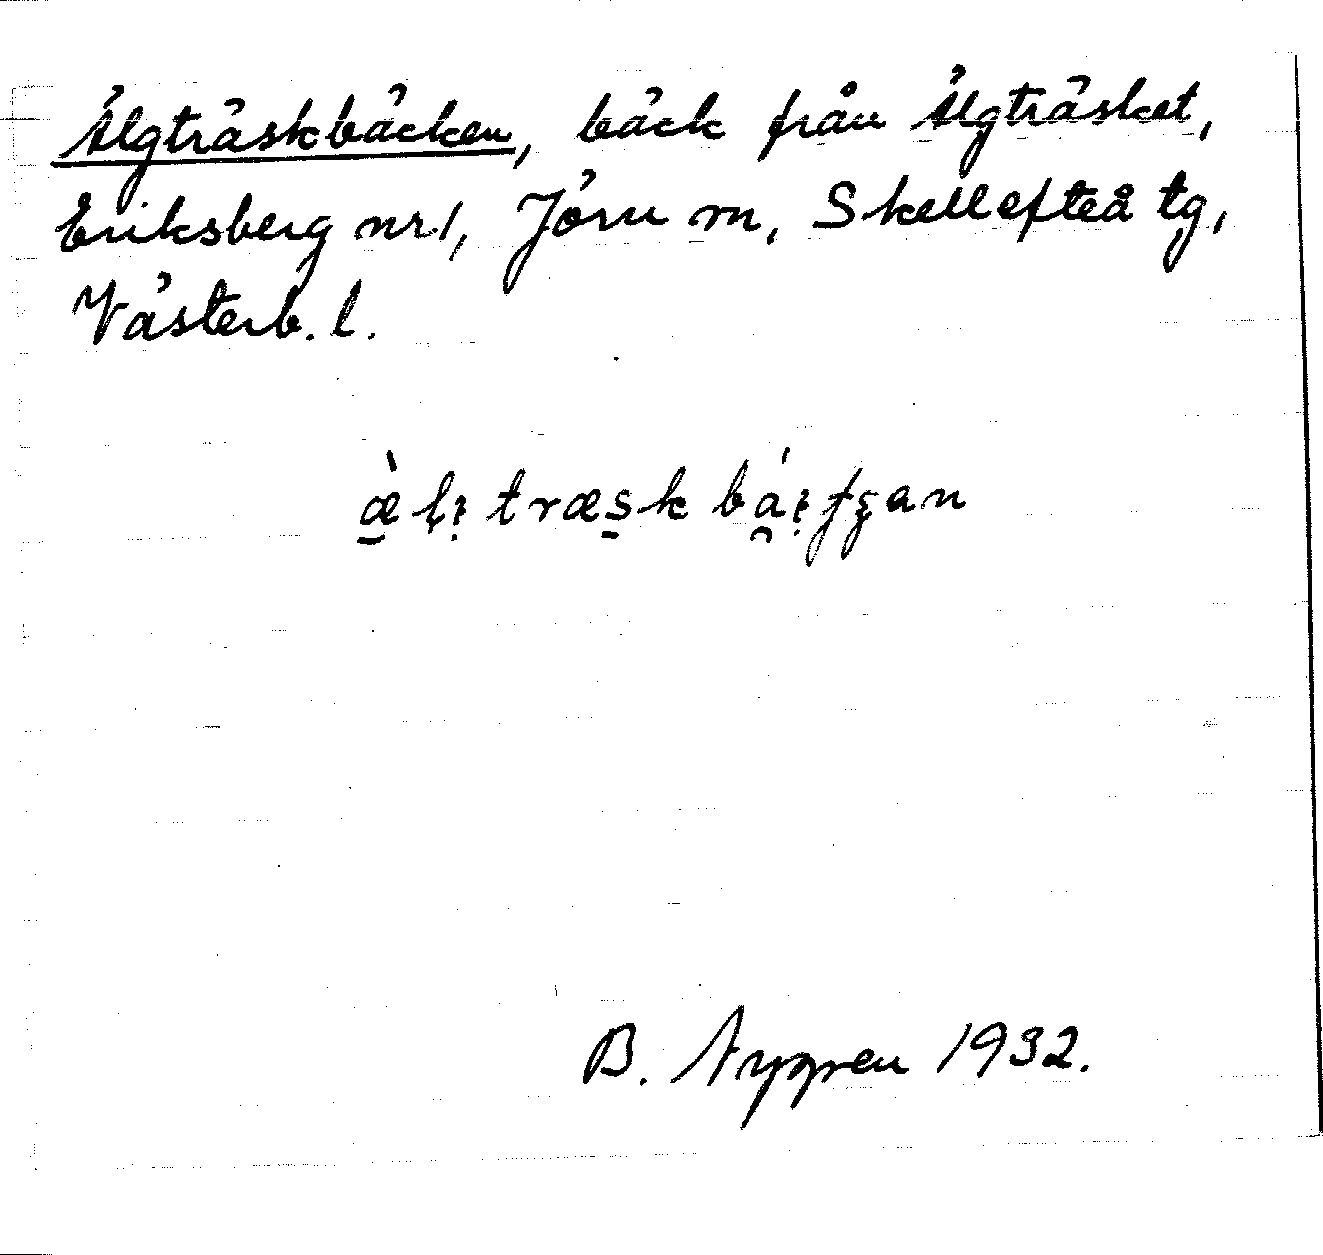 Älgträskbäcken, bäck från Älgträsket,
Eriksberg nr 1, Jörn m, Skellefteå tg,
Västerb. l.
B. Nygren 1932.